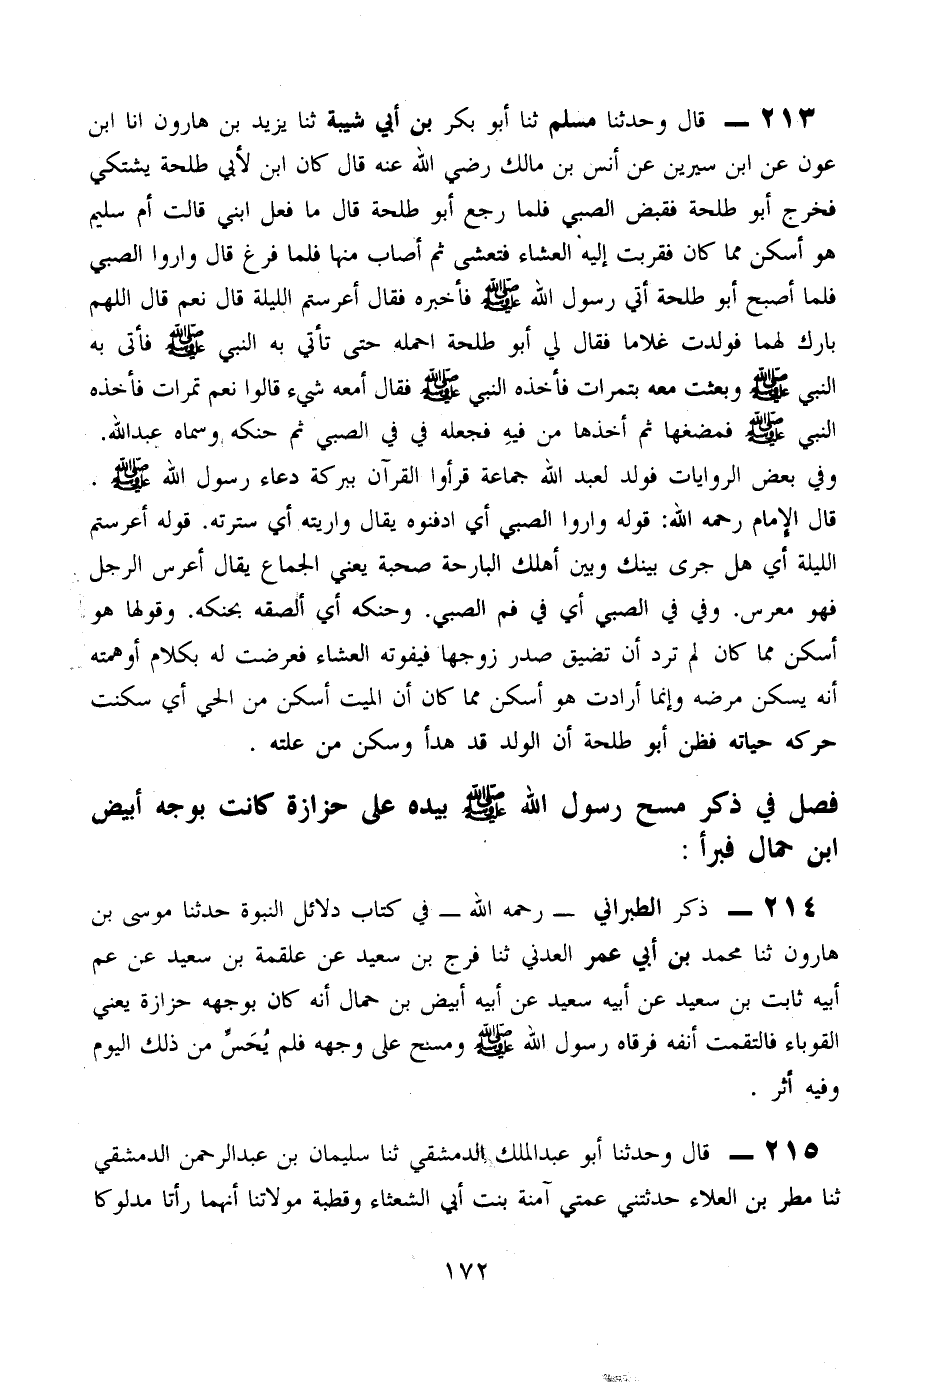 ٢١٣ ــ قال وحدثنا مسلم ثنا أبو بكر بن أبي شيبة ثنا يزيد بن هارون انا ابن
عون عن ابن سيرين عن أنس بن مالك رضي الله عنه قال كان ابن لأبي طلحة يشتكي
فخرج أبو طلحة فقبض الصبي فلما رجع أبو طلحة قال ما فعل ابني قالت أم سليم
هو أسكن مما كان فقربت إليه العشاء فتعشى ثم أصاب منها فلما فرغ قال واروا الصبي
فلما أصبح أبو طلحة أتي رسول الله ﷺ فأخبره فقال أعرستم الليلة قال نعم قال اللهم
بارك لهما فولدت غلاما فقال لي أبو طلحة احمله حتى تأتي به النبي ﷺ فأتى به
النبي ﷺ وبعثت معه بتمرات فأخذه النبي ﷺ فقال أمعه شيء قالوا نعم تمرات فأخذه
النبي ﷺ فمضغها ثم أخذها من فيهِ فجعله في في الصبي ثم حنكه وسماه عبدالله.
وفي بعض الروايات فولد لعبد الله جماعة قرأوا القرآن ببركة دعاء رسول الله ﷺ .
قال الإمام رحمه الله: قوله واروا الصبي أي ادفنوه يقال واريته أي سترته. قوله أعرستم
الليلة أي هل جرى بينك وبين أهلك البارحة صحبة يعني الجماع يقال أعرس الرجل
فهو معرس. وفي في الصبي أي في فم الصبي. وحنكه أي ألصقه بحنكه. وقولها هو
أسكن مما كان لم ترد أن تضيق صدر زوجها فيفوته العشاء فعرضت له بكلام أوهمته
أنه يسكن مرضه وإنما أرادت هو أسكن مما كان أن الميت أسكن من الحي أي سكنت
حركه حياته فظن أبو طلحة أن الولد قد هدأ وسكن من علته .
فصل في ذكر مسح رسول الله ﷺ بيده على حزازة كانت بوجه أبيض
ابن حمال فبرأ :
٢١٤ ــ ذكر الطبراني ــ رحمه الله ــ في كتاب دلائل النبوة حدثنا موسى بن
هارون ثنا محمد بن أبي عمر العدني ثنا فرج بن سعيد عن علقمة بن سعيد عن عم
أبيه ثابت بن سعيد عن أبيه سعيد عن أبيه أبيض بن حمال أنه كان بوجهه حزازة يعني
القوباء فالتقمت أنفه فرقاه رسول الله ﷺ ومسح على وجهه فلم يُحَسِّ من ذلك اليوم
وفيه أثر .
٢١٥ ــ قال وحدثنا أبو عبدالملك الدمشقي ثنا سليمان بن عبدالرحمن الدمشقي
ثنا مطر بن العلاء حدثتني عمتي آمنة بنت أبي الشعثاء وقطبة مولاتنا أنهما رأتا مدلوكا
١٧٢